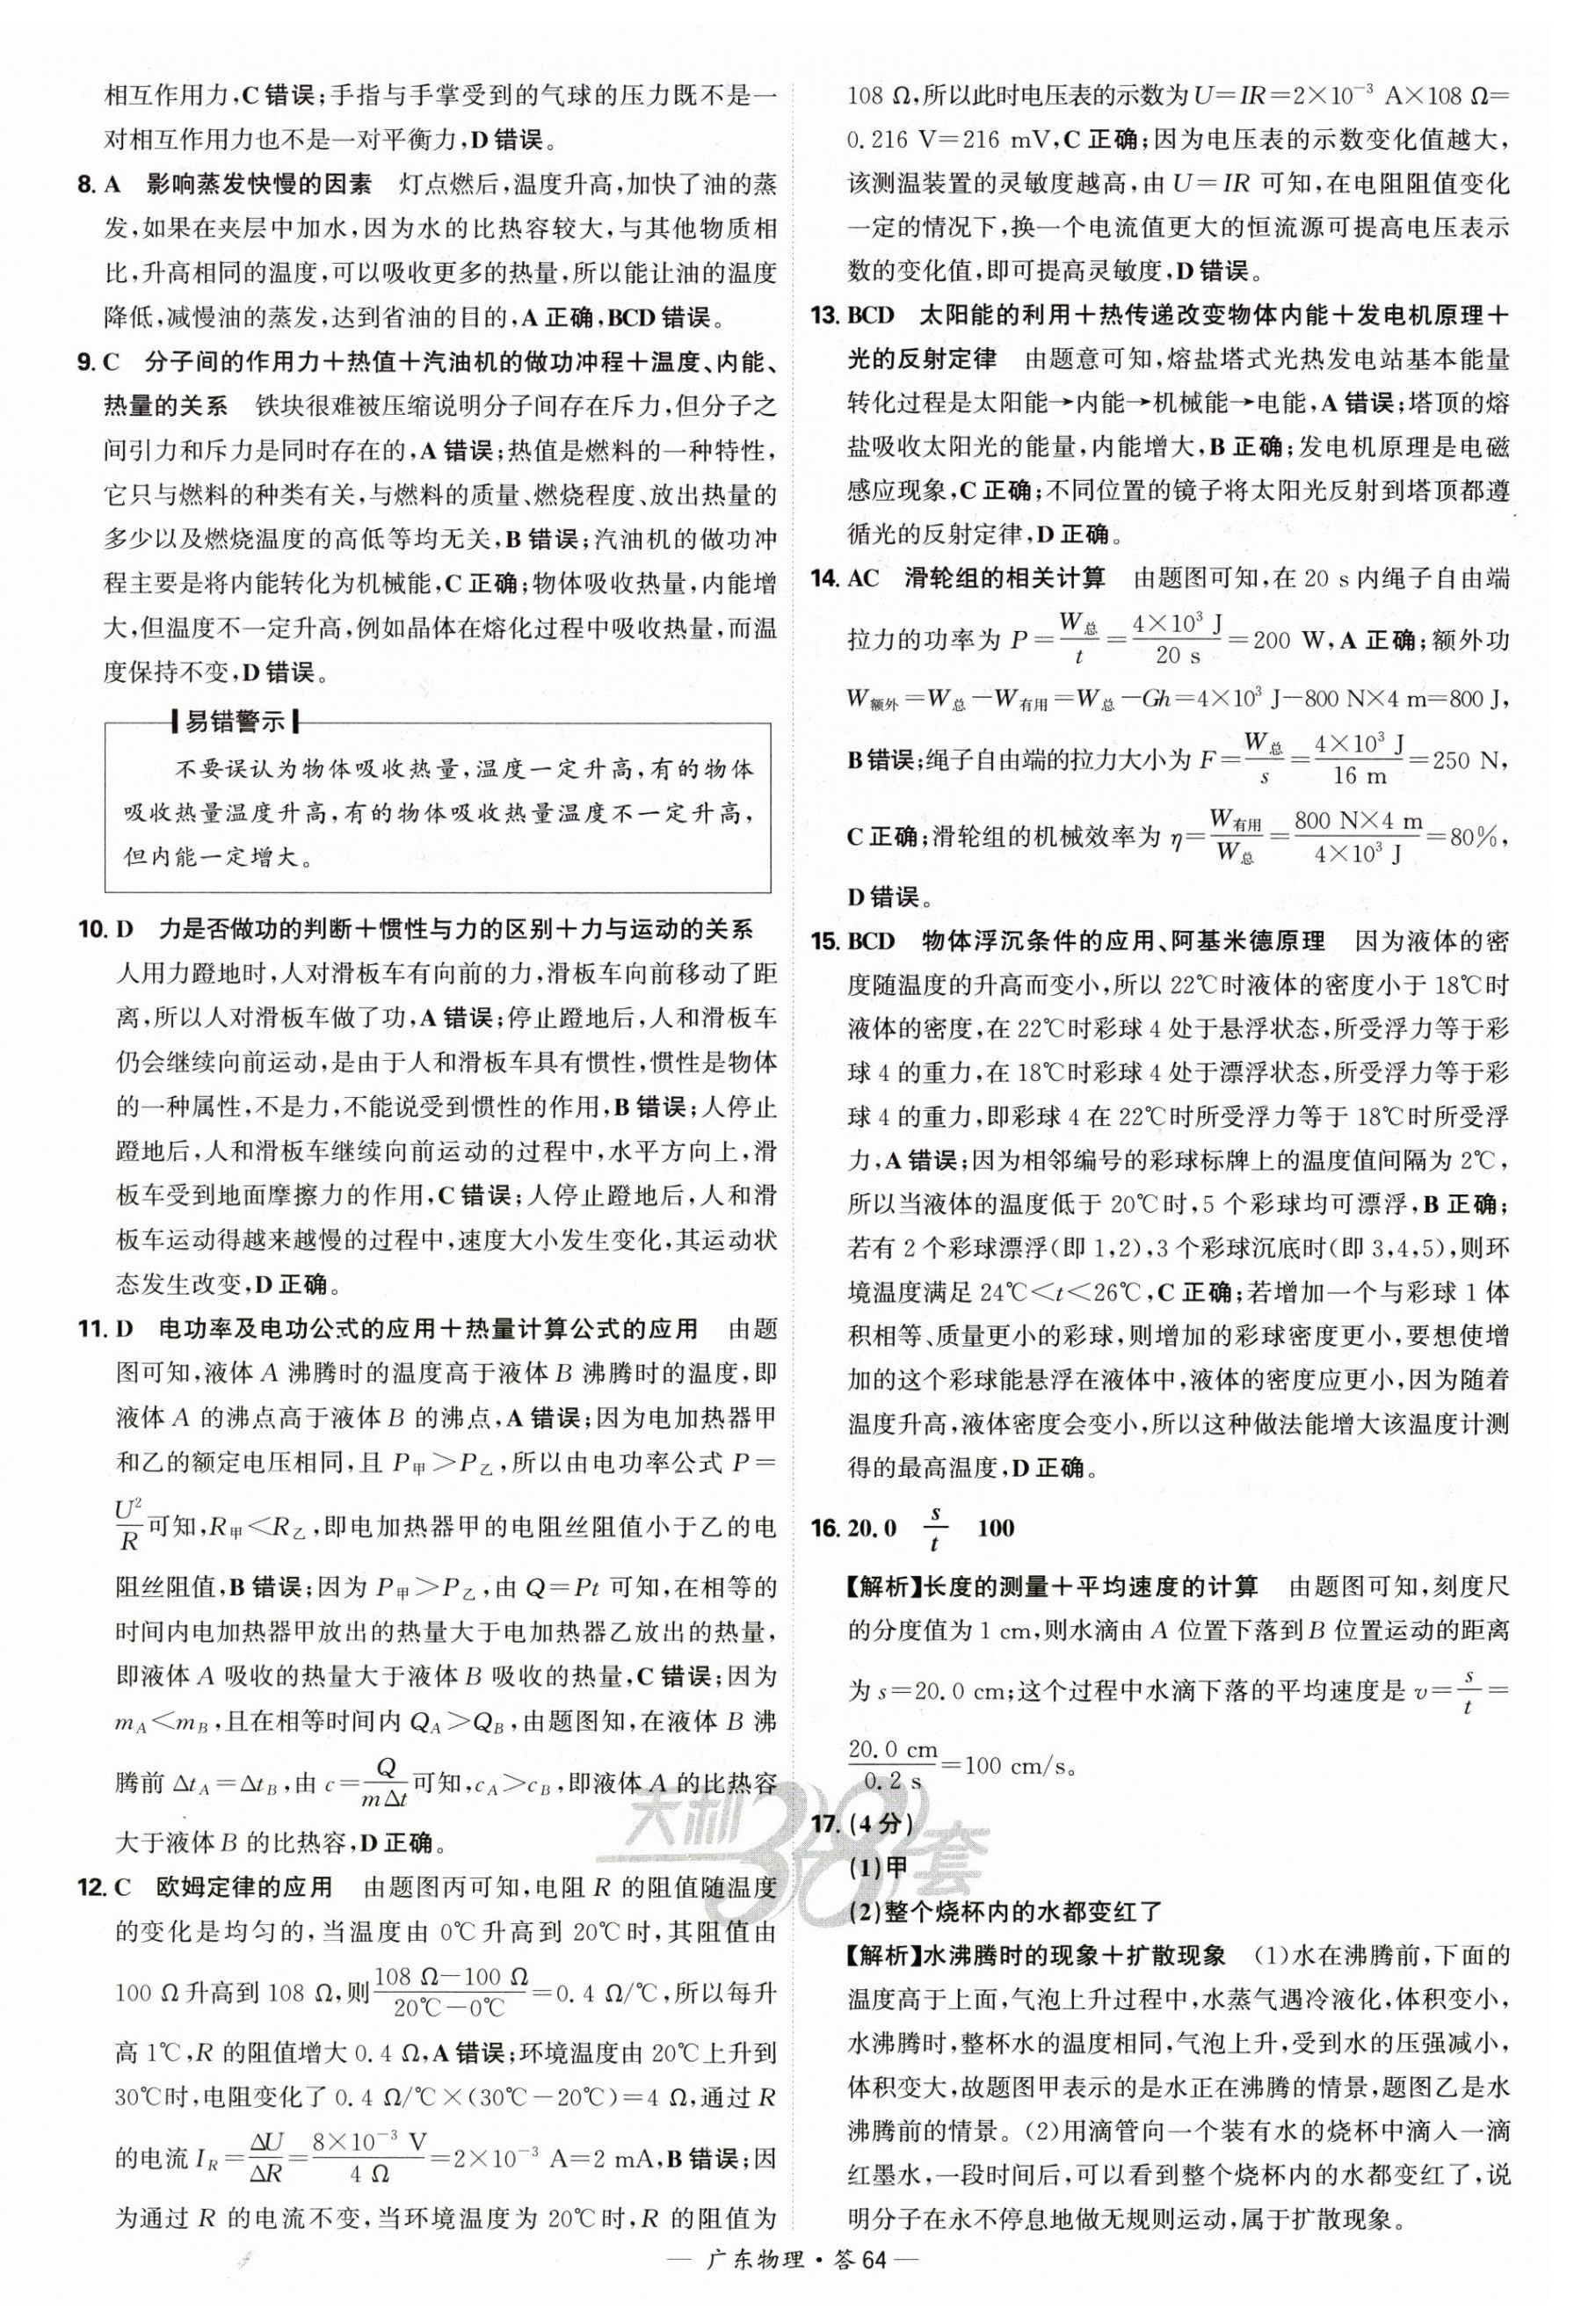 相互作用力,C错误;手指与手掌受到的气球的压力既不是一
对相互作用力也不是一对平衡力,D错误。
8. A 影响蒸发快慢的因素 灯点燃后,温度升高,加快了油的蒸
发,如果在夹层中加水,因为水的比热容较大,与其他物质相
比,升高相同的温度,可以吸收更多的热量,所以能让油的温度
降低,减慢油的蒸发,达到省油的目的,A正确,BCD错误。
9. C 分子间的作用力+热值+汽油机的做功冲程+温度、内能、
热量的关系 铁块很难被压缩说明分子间存在斥力,但分子之
间引力和斥力是同时存在的,A错误;热值是燃料的一种特性,
它只与燃料的种类有关,与燃料的质量、燃烧程度、放出热量的
多少以及燃烧温度的高低等均无关,B错误;汽油机的做功冲
程主要是将内能转化为机械能,C正确;物体吸收热量,内能增
大,但温度不一定升高,例如晶体在熔化过程中吸收热量,而温
度保持不变,D错误。
易错警示
不要误认为物体吸收热量,温度一定升高,有的物体
吸收热量温度升高,有的物体吸收热量温度不一定升高,
但内能一定增大。
10. D 力是否做功的判断+惯性与力的区别+力与运动的关系
人用力蹬地时,人对滑板车有向前的力,滑板车向前移动了距
离,所以人对滑板车做了功,A错误;停止蹬地后,人和滑板车
仍会继续向前运动,是由于人和滑板车具有惯性,惯性是物体
的一种属性,不是力,不能说受到惯性的作用,B错误;人停止
蹬地后,人和滑板车继续向前运动的过程中,水平方向上,滑
板车受到地面摩擦力的作用,C错误;人停止蹬地后,人和滑
板车运动得越来越慢的过程中,速度大小发生变化,其运动状
态发生改变,D正确。
11. D 电功率及电功公式的应用+热量计算公式的应用 由题
图可知,液体A沸腾时的温度高于液体B沸腾时的温度,即
液体A的沸点高于液体B的沸点,A错误;因为电加热器甲
和乙的额定电压相同,且P甲>P乙,所以由电功率公式P=
U²/R可知,R甲<R乙,即电加热器甲的电阻丝阻值小于乙的电
阻丝阻值,B错误;因为P甲>P乙,由Q=Pt可知,在相等的
时间内电加热器甲放出的热量大于电加热器乙放出的热量,
即液体A吸收的热量大于液体B吸收的热量,C错误;因为
mA<mB,且在相等时间内QA>QB,由题图知,在液体B沸
腾前ΔtA=ΔtB,由c=Q/mΔt可知,cA>cB,即液体A的比热容
大于液体B的比热容,D正确。
12. C 欧姆定律的应用 由题图丙可知,电阻R的阻值随温度
的变化是均匀的,当温度由0℃升高到20℃时,其阻值由
100 Ω升高到108 Ω,则(108 Ω-100 Ω)/(20℃-0℃)=0.4 Ω/℃,所以每升
高1℃,R的阻值增大0.4 Ω,A错误;环境温度由20℃上升到
30℃时,电阻变化了0.4 Ω/℃×(30℃-20℃)=4 Ω,通过R
的电流IR=ΔU/ΔR=8×10⁻³ V/4 Ω=2×10⁻³ A=2 mA,B错误;因
为通过R的电流不变,当环境温度为20℃时,R的阻值为
108 Ω,所以此时电压表的示数为U=IR=2×10⁻³ A×108 Ω=
0.216 V=216 mV,C正确;因为电压表的示数变化值越大,
该测温装置的灵敏度越高,由U=IR可知,在电阻阻值变化
一定的情况下,换一个电流值更大的恒流源可提高电压表示
数的变化值,即可提高灵敏度,D错误。
13. BCD 太阳能的利用+热传递改变物体内能+发电机原理+
光的反射定律 由题意可知,熔盐塔式光热发电站基本能量
转化过程是太阳能→内能→机械能→电能,A错误;塔顶的熔
盐吸收太阳光的能量,内能增大,B正确;发电机原理是电磁
感应现象,C正确;不同位置的镜子将太阳光反射到塔顶都遵
循光的反射定律,D正确。
14. AC 滑轮组的相关计算 由题图可知,在20 s内绳子自由端
拉力的功率为P=W总/t=4×10³ J/20 s=200 W,A正确;额外功
W额外=W总-W有用=W总-Gh=4×10³ J-800 N×4 m=800 J,
B错误;绳子自由端的拉力大小为F=W总/s=4×10³ J/16 m=250 N,
C正确;滑轮组的机械效率为η=W有用/W总=800 N×4 m/4×10³ J=80%,
D错误。
15. BCD 物体浮沉条件的应用、阿基米德原理 因为液体的密
度随温度的升高而变小,所以22℃时液体的密度小于18℃时
液体的密度,在22℃时彩球4处于悬浮状态,所受浮力等于彩
球4的重力,在18℃时彩球4处于漂浮状态,所受浮力等于彩
球4的重力,即彩球4在22℃时所受浮力等于18℃时所受浮
力,A错误;因为相邻编号的彩球标牌上的温度值间隔为2℃,
所以当液体的温度低于20℃时,5个彩球均可漂浮,B正确;
若有2个彩球漂浮(即1,2),3个彩球沉底时(即3,4,5),则环
境温度满足24℃<t<26℃,C正确;若增加一个与彩球1体
积相等、质量更小的彩球,则增加的彩球密度更小,要想使增
加的这个彩球能悬浮在液体中,液体的密度应更小,因为随着
温度升高,液体密度会变小,所以这种做法能增大该温度计测
得的最高温度,D正确。
16. 20.0 s/t 100
【解析】长度的测量+平均速度的计算 由题图可知,刻度尺
的分度值为1 cm,则水滴由A位置下落到B位置运动的距离
为s=20.0 cm;这个过程中水滴下落的平均速度是v=s/t=
20.0 cm/0.2 s=100 cm/s。
17. (4分)
(1)甲
(2)整个烧杯内的水都变红了
【解析】水沸腾时的现象+扩散现象 (1)水在沸腾前,下面的
温度高于上面,气泡上升过程中,水蒸气遇冷液化,体积变小,
水沸腾时,整杯水的温度相同,气泡上升,受到水的压强减小,
体积变大,故题图甲表示的是水正在沸腾的情景,题图乙是水
沸腾前的情景。(2)用滴管向一个装有水的烧杯中滴入一滴
红墨水,一段时间后,可以看到整个烧杯内的水都变红了,说
明分子在永不停息地做无规则运动,属于扩散现象。
天利38套
— 广东物理·答64 —